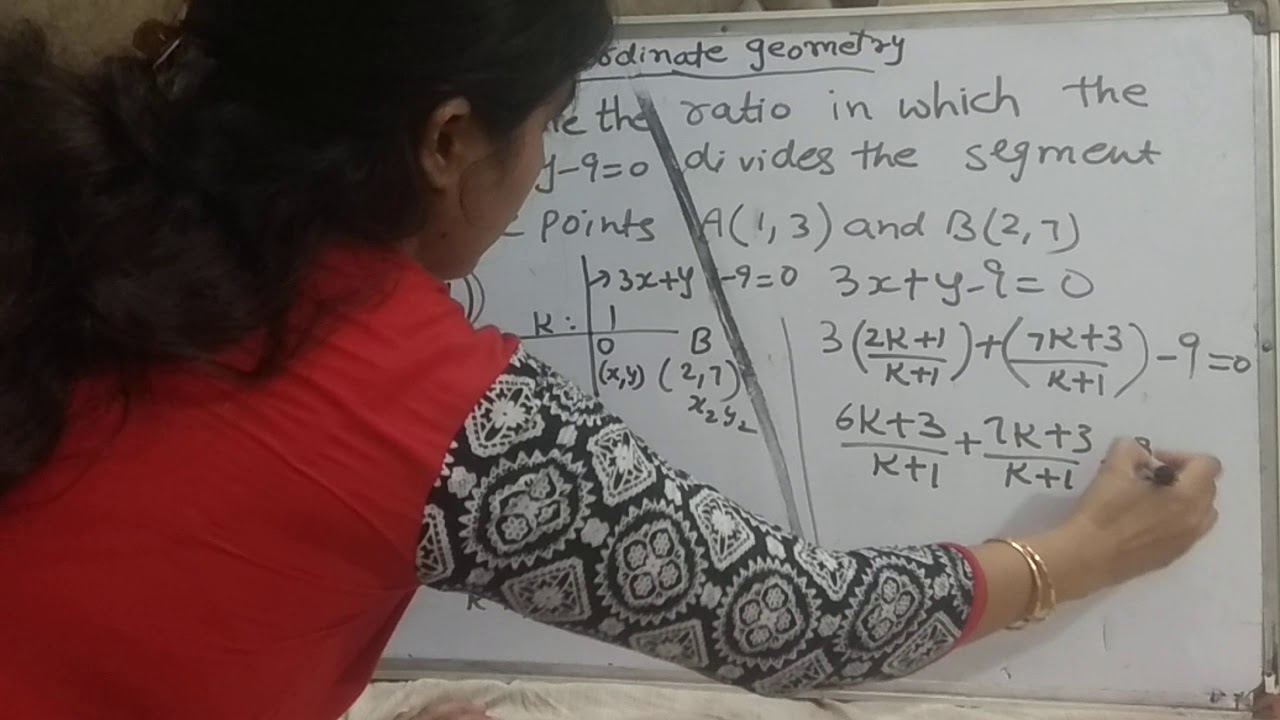 ordinate geometry
the ratio in which the
y-9=0 divides the segment
points A(1,3) and B(2,7)
3x+y-9=0 3x+y-9=0
K: 1
O B
(x,y) (2,7)
x₂y₂
3(2K+1/K+1)+(7K+3/K+1)-9=0
6K+3/K+1+7K+3/K+1
K